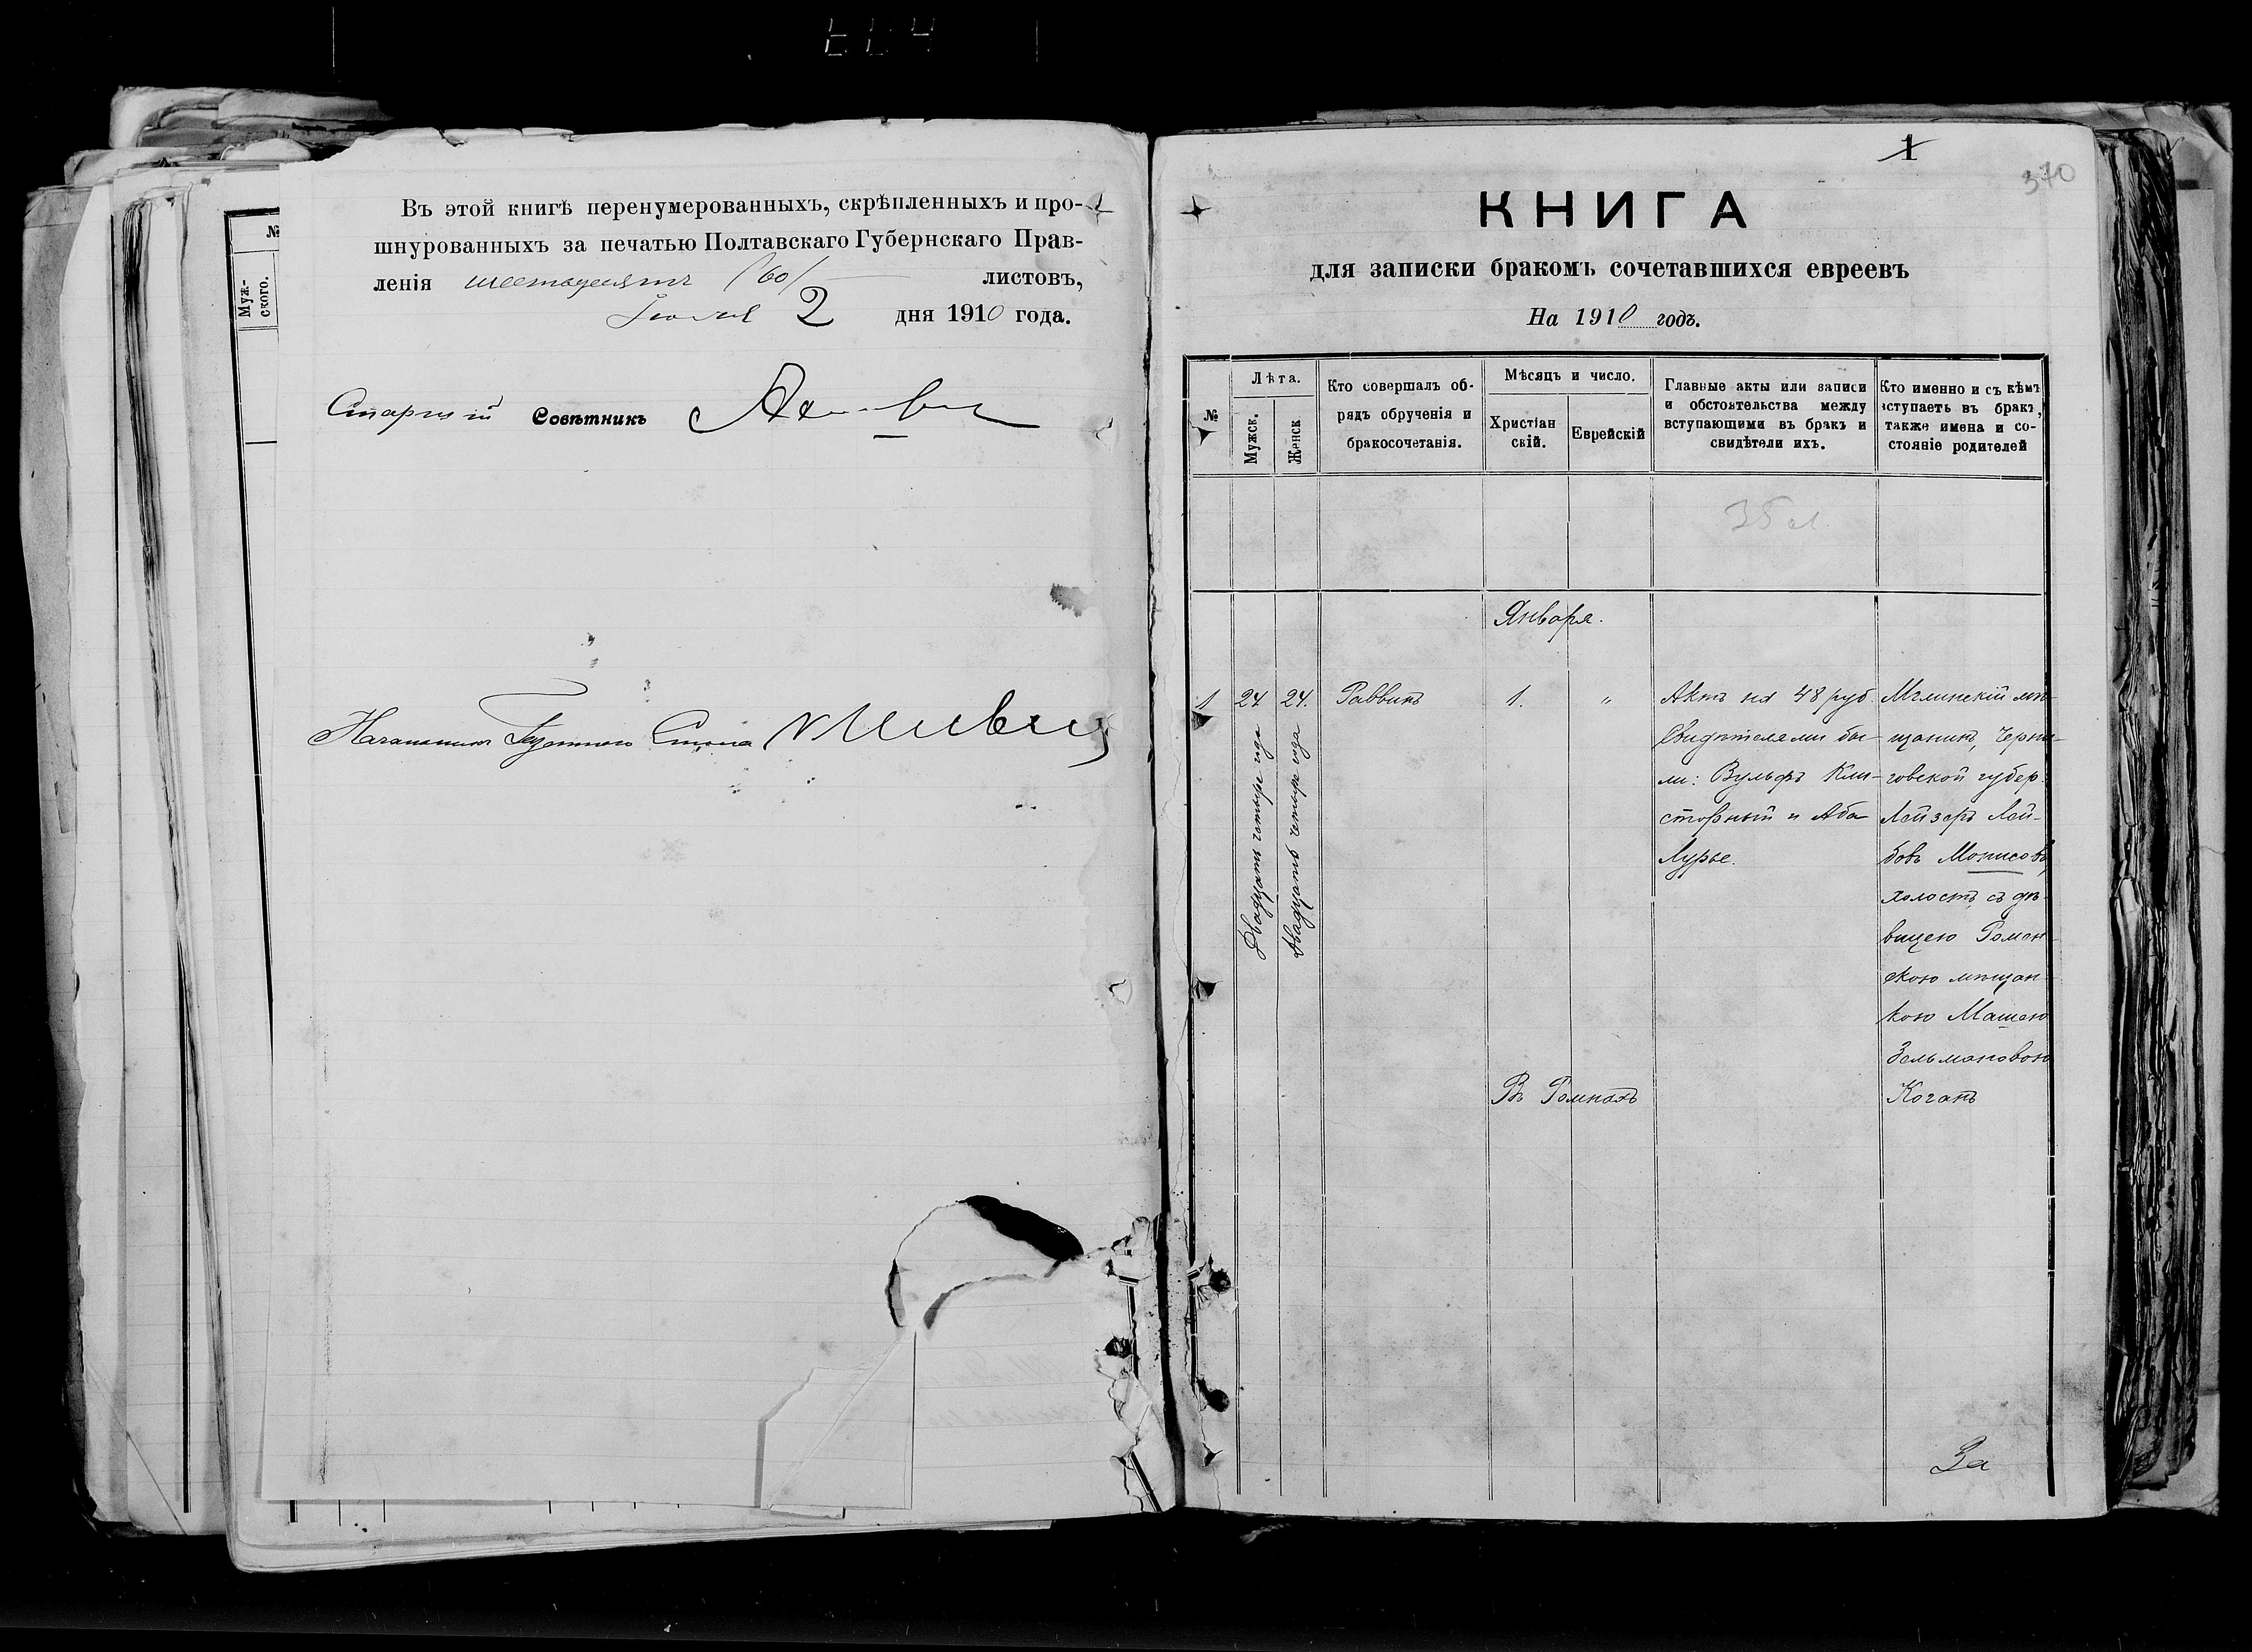 Въ этой книгѣ перенумерованныхъ, скрѣпленныхъ и про-
шнурованныхъ за печатью Полтавскаго Губернскаго Прав-
ленія шестьдесятъ /60/ листовъ,
2 дня 1910 года.
Старшій Совѣтникъ
Начальникъ Газетнаго Стола
№
Муж-
ского.
1
370
КНИГА
для записки бракомъ сочетавшихся евреевъ
На 1910 годъ.
№
Лѣта.
Мужск.
Женск
Кто совершалъ об-
рядъ обрученія и
бракосочетанія.
Мѣсяцъ и число.
Христіан
скій.
Еврейскій
Главные акты или записи
и обстоятельства между
вступающими въ бракъ и
свидѣтели ихъ.
Кто именно и съ кѣмъ
вступаетъ въ бракъ,
также имена и со-
стояніе родителей
Января.
1
24
Двадцать четыре года
24.
Двадцать четыре года
Раввинъ
1.
"
Въ Ромнахъ
Актъ на 48 руб.
Свидѣтелями бы-
ли: Вульфъ Кли-
сторный и Аба
Лурье.
Мглинскій мѣ-
щанинъ, Черни-
говской губер.
Лейзеръ Лей-
бовъ Монисовъ,
холостъ съ дѣ-
вицею Ромен-
скою мѣщан-
кою Машею
Зельмановою
Коганъ
За